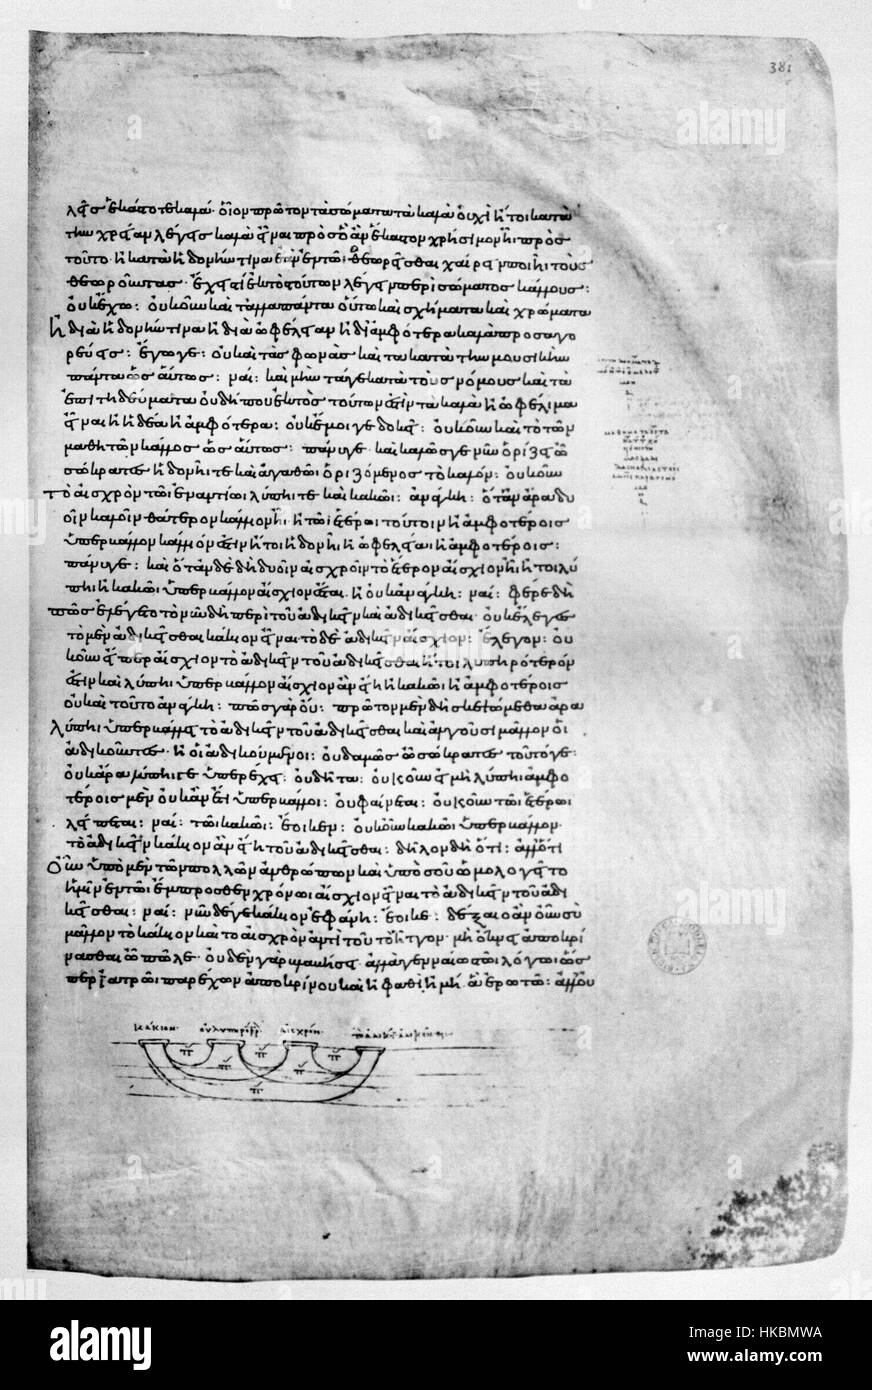 381
λεῖς ἑκάστοτε καλά· οἷον πρῶτον τὰ σώματα τὰ καλὰ οὐχὶ ἤτοι κατὰ
τὴν χρείαν λέγεις καλὰ εἶναι πρὸς ὃ ἂν ἕκαστον χρήσιμον ἦι πρὸς
τοῦτο· ἢ κατὰ ἡδονήν τινα ἐὰν ἐν τῶι θεωρεῖσθαι χαίρειν ποιῆι τοὺς
θεωροῦντας· ἔχεις τι ἐκτὸς τούτων λέγειν περὶ σώματος κάλλους:
οὐκ ἔχω: οὐκοῦν καὶ τἆλλα πάντα οὕτω καὶ σχήματα καὶ χρώματα
ἢ διὰ ἡδονήν τινα ἢ διὰ ὠφελείαν ἢ δι' ἀμφότερα καλὰ προσαγο
ρεύεις: ἔγωγε: οὐ καὶ τὰς φωνὰς καὶ τὰ κατὰ τὴν μουσικὴν
πάντα ὡσαύτως: ναί: καὶ μὴν τά γε κατὰ τοὺς νόμους καὶ τὰ
ἐπιτηδεύματα οὐ δήπου ἐκτὸς τούτων ἐστὶν τὰ καλὰ ἢ ὠφέλιμα
εἶναι ἢ ἡδέα ἢ ἀμφότερα: οὐκ ἔμοιγε δοκεῖ: οὐκοῦν καὶ τὸ τῶν
μαθητῶν κάλλος ὡσαύτως: πάνυ γε καὶ καλῶς γε νῦν ὁρίζει ὦ
σώκρατες ἡδονῆι τε καὶ ἀγαθῶι ὁριζόμενος τὸ καλόν: οὐκοῦν
τὸ αἰσχρὸν τῶι ἐναντίωι λύπηι τε καὶ κακῶι: ἀνάγκη: ὅταν ἄρα δυ
οῖν καλοῖν θάτερον κάλλιον ἦι· ἢ τῶι ἑτέρωι τούτοιν ἢ ἀμφοτέροις
ὑπερβάλλον κάλλιόν ἐστιν ἤτοι ἡδονῆι ἢ ὠφελείαι ἢ ἀμφοτέροις:
πάνυ γε: καὶ ὅταν δὲ δὴ δυοῖν αἰσχροῖν τὸ ἕτερον αἴσχιον ἦι ἤτοι λύ
πηι ἢ κακῶι ὑπερβάλλον αἴσχιον ἔσται· ἢ οὐκ ἀνάγκη: ναί: φέρε δὴ
πῶς ἐλέγετο νῦν δὴ περὶ τοῦ ἀδικεῖν καὶ ἀδικεῖσθαι· οὐκ ἔλεγες
τὸ μὲν ἀδικεῖσθαι κάκιον εἶναι τὸ δὲ ἀδικεῖν αἴσχιον: ἔλεγον: οὐ
κοῦν εἴπερ αἴσχιον τὸ ἀδικεῖν τοῦ ἀδικεῖσθαι ἤτοι λυπηρότερόν
ἐστιν καὶ λύπηι ὑπερβάλλον αἴσχιον ἂν εἴη ἢ κακῶι ἢ ἀμφοτέροις
οὐ καὶ τοῦτο ἀνάγκη: πῶς γὰρ οὔ: πρῶτον μὲν δὴ σκεψώμεθα ἆρα
λύπηι ὑπερβάλλει τὸ ἀδικεῖν τοῦ ἀδικεῖσθαι καὶ ἀλγοῦσι μᾶλλον οἱ
ἀδικοῦντες· ἢ οἱ ἀδικούμενοι: οὐδαμῶς ὦ σώκρατες τοῦτό γε:
οὐκ ἄρα λύπηι γε ὑπερέχει: οὐ δῆτα: οὐκοῦν εἰ μὴ λύπηι ἀμφο
τέροις μὲν οὐκ ἂν ἔτι ὑπερβάλλοι: οὐ φαίνεται: οὐκοῦν τῶι ἑτέρωι
λείπεται: ναί: τῶι κακῶι: ἔοικεν: οὐκοῦν κακῶι ὑπερβάλλον
τὸ ἀδικεῖν κάκιον ἂν εἴη τοῦ ἀδικεῖσθαι: δῆλον δὴ ὅτι: ἄλλο τι
οὖν ὑπὸ μὲν τῶν πολλῶν ἀνθρώπων καὶ ὑπὸ σοῦ ὡμολογεῖτο
ἡμῖν ἐν τῶι ἔμπροσθεν χρόνωι αἴσχιον εἶναι τὸ ἀδικεῖν τοῦ ἀδι
κεῖσθαι: ναί: νῦν δέ γε κάκιον ἐφάνη: ἔοικε: δέξαιο ἂν οὖν σὺ
μᾶλλον τὸ κάκιον καὶ τὸ αἴσχιον ἀντὶ τοῦ ἧττον· μὴ ὄκνει ἀποκρί
νασθαι ὦ πῶλε· οὐδὲν γὰρ βλαβήσει· ἀλλὰ γενναίως τῶι λόγωι ὥσ
περ ἰατρῶι παρέχων ἀποκρίνου καὶ ἢ φάθι ἢ μὴ ἃ ἐρωτῶ: ἀλλ' οὐ
κάκιον
αἰσχρόν
π
π
π
π
π
π